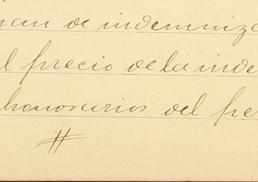 de indemniza
el precio de la inde
honorarios del pe
#